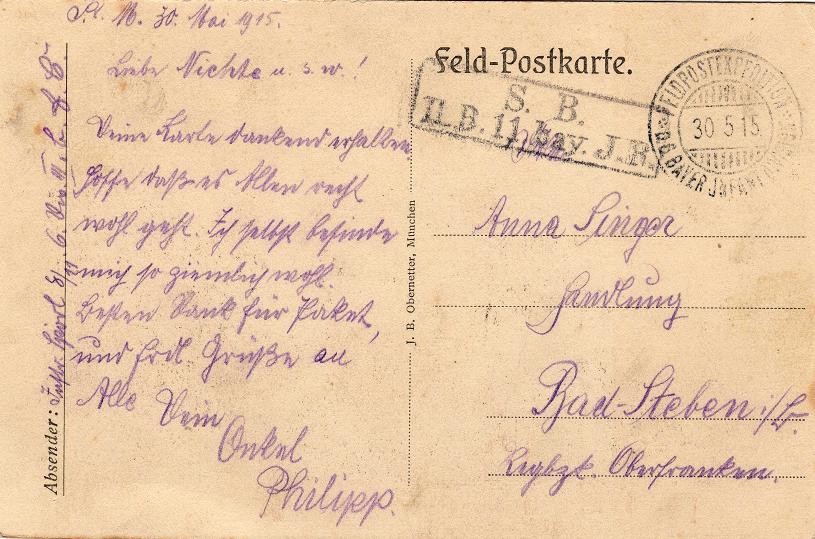 St. M. 30. Mai 1915.
Liebe Nichte u. s. w.!
Deine Karte dankend erhalten,
hoffe daß es Allen recht
wohl geht. Ich selbst befinde
mich so ziemlich wohl.
Besten Dank für Paket,
und frdl. Grüße an
Alle Dein
Onkel
Philipp.
Absender:
J. B. Obernetter, München
Feld-Postkarte.
S. B.
II. B. 11. bay. J. R.
FELDPOSTEXPEDITION
30 5 15
BAYER
Anna Singer
Handlung
Bad-Steben i/B.
Regbzk. Oberfranken.